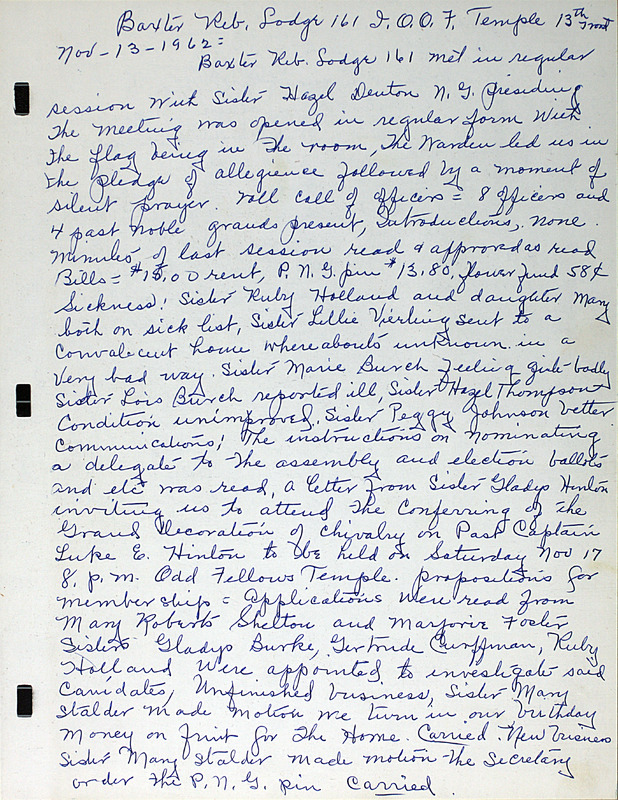 Baxter Reb. Lodge 161 I.O.O.F. Temple 13th & Front
Nov-13-1962=
Baxter Reb. Lodge 161 met in regular
session with Sister Hazel Denton N.G. presiding
The meeting was opened in regular form with
the flag being in the room, The Warden led us in
the pledge of allegience followed by a moment of
silent prayer. Roll call of officers = 8 officers and
4 past noble grands present, Introductions, none.
Minutes of last session read & approved as read
Bills = $15.00 rent, P.N.G. pin $13.80, flower fund 58¢
Sickness! Sister Ruby Holland and daughter Mary
both on sick list, Sister Lillie Vierling sent to a
Convalecent home whereabouts unknown in a
Very bad way. Sister Marie Burch feeling quite badly
Sister Lois Burch reported ill, Sister Hazel Thompson
Condition unimproved, Sister Peggy Johnson better
Communications! The instructions on nominating
a delegate to the assembly and election ballots
and etc was read, a letter from Sister Gladys Hinton
inviting us to attend the Conferring of the
Grand Decoration of chivalry on Past Captain
Luke E. Hinton to be held on Saturday Nov 17
8. p.m. Odd Fellows Temple. propositions for
membership = Applications were read from
Mary Roberts Shelton and Marjorie Foster
Sisters Gladys Burke, Gertrude Curffman, Ruby
Holland were appointed to investigate said
Canidates, Unfinished business, Sister Mary
Stalder made motion we turn in our birthday
money on fruit for the Home. Carried. New business
Sister Mary Stalder made motion the Secretary
order the P.N.G. pin Carried.